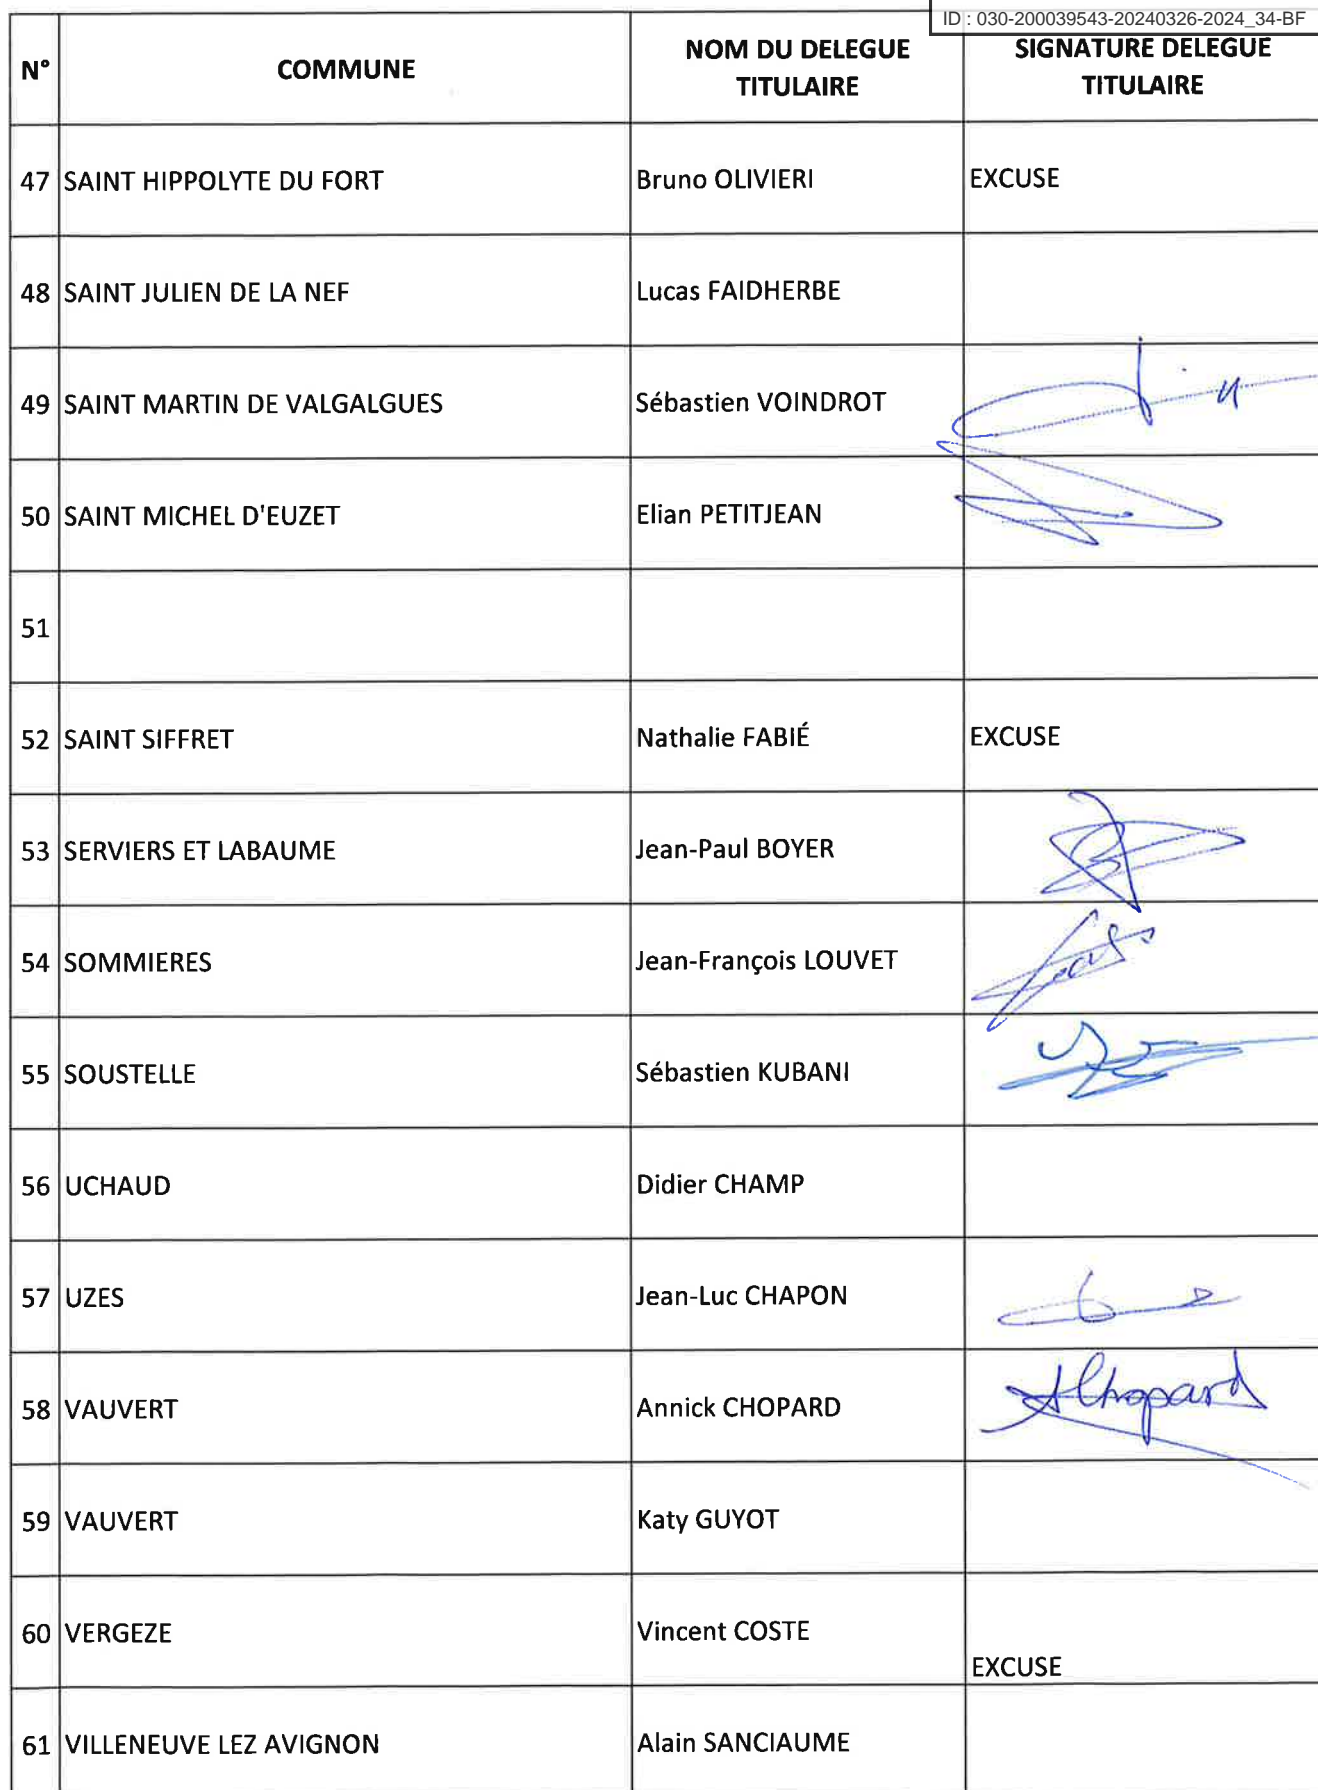 ID : 030-200039543-20240326-2024_34-BF
N° COMMUNE NOM DU DELEGUE TITULAIRE SIGNATURE DELEGUE TITULAIRE
47 SAINT HIPPOLYTE DU FORT Bruno OLIVIERI EXCUSE
48 SAINT JULIEN DE LA NEF Lucas FAIDHERBE
49 SAINT MARTIN DE VALGALGUES Sébastien VOINDROT
50 SAINT MICHEL D'EUZET Elian PETITJEAN
51
52 SAINT SIFFRET Nathalie FABIÉ EXCUSE
53 SERVIERS ET LABAUME Jean-Paul BOYER
54 SOMMIERES Jean-François LOUVET
55 SOUSTELLE Sébastien KUBANI
56 UCHAUD Didier CHAMP
57 UZES Jean-Luc CHAPON
58 VAUVERT Annick CHOPARD AChopard
59 VAUVERT Katy GUYOT
60 VERGEZE Vincent COSTE EXCUSE
61 VILLENEUVE LEZ AVIGNON Alain SANCIAUME